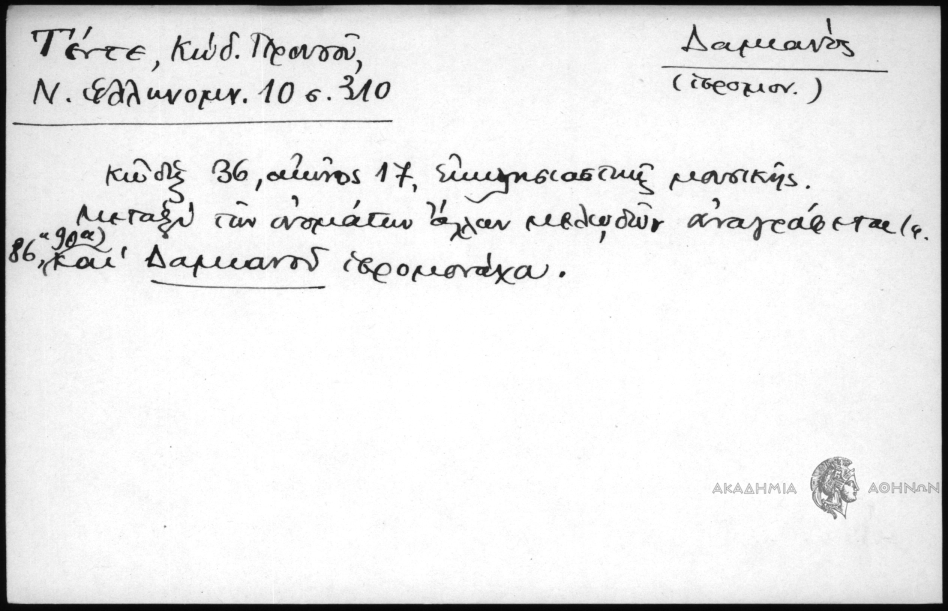 Τέντε, Κώδ. Προυσοῦ,
Ν. Ἑλληνομν. 10 σ. 310
Δαμιανὸς
(ἱερομον.)
Κῶδιξ 36, αἰῶνος 17, ἐκκλησιαστικῆς μουσικῆς.
Μεταξὺ τῶν ὀνομάτων ἄλλων μελῳδῶν ἀναγράφεται (φ.
86α, 90α) καὶ Δαμιανοῦ ἱερομονάχα.
ΑΚΑΔΗΜΙΑ ΑΘΗΝΩΝ